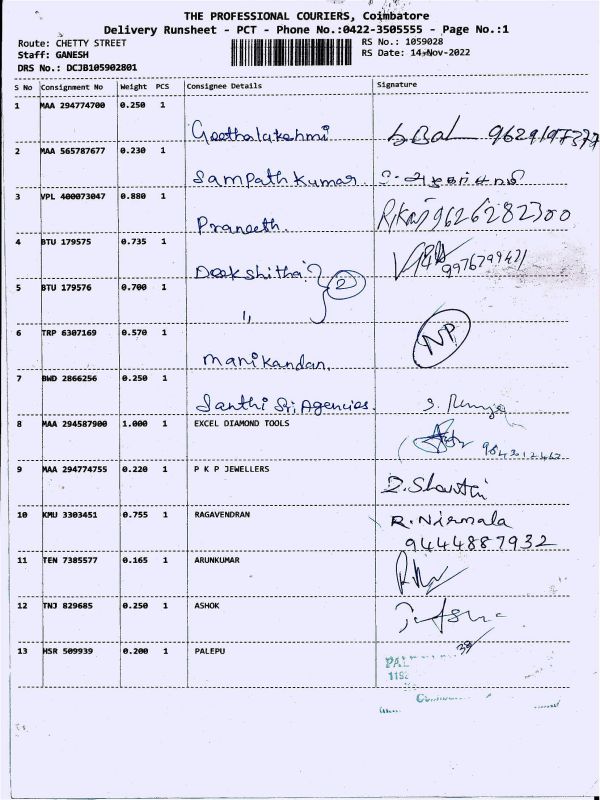 THE PROFESSIONAL COURIERS, Coimbatore
Delivery Runsheet - PCT - Phone No.:0422-3505555 - Page No.:1
Route: CHETTY STREET
RS No.: 1059028
Staff: GANESH
RS Date: 14-Nov-2022
DRS No.: DCJB105902801
S No Consignment No Weight PCS Consignee Details Signature
1 MAA 294774700 0.250 1
Geethalakshmi
2 MAA 565787677 0.230 1
Sampath Kumar
3 VPL 400073047 0.880 1
Praneeth. 9626282300
4 BTU 179575 0.735 1
Deekshitha 2
5 BTU 179576 0.700 1
"
6 TRP 6307169 0.570 1
NP
Manikandan.
7 BWD 2866256 0.250 1
Santhi Sri, Agencies.
8 MAA 294587900 1.000 1 EXCEL DIAMOND TOOLS
9 MAA 294774755 0.220 1 P K P JEWELLERS
Z. Shanthi
10 KMU 3303451 0.755 1 RAGAVENDRAN R. Nirmala
9444887932
11 TEN 7385577 0.165 1 ARUNKUMAR
12 TNJ 829685 0.250 1 ASHOK
13 HSR 509939 0.200 1 PALEPU